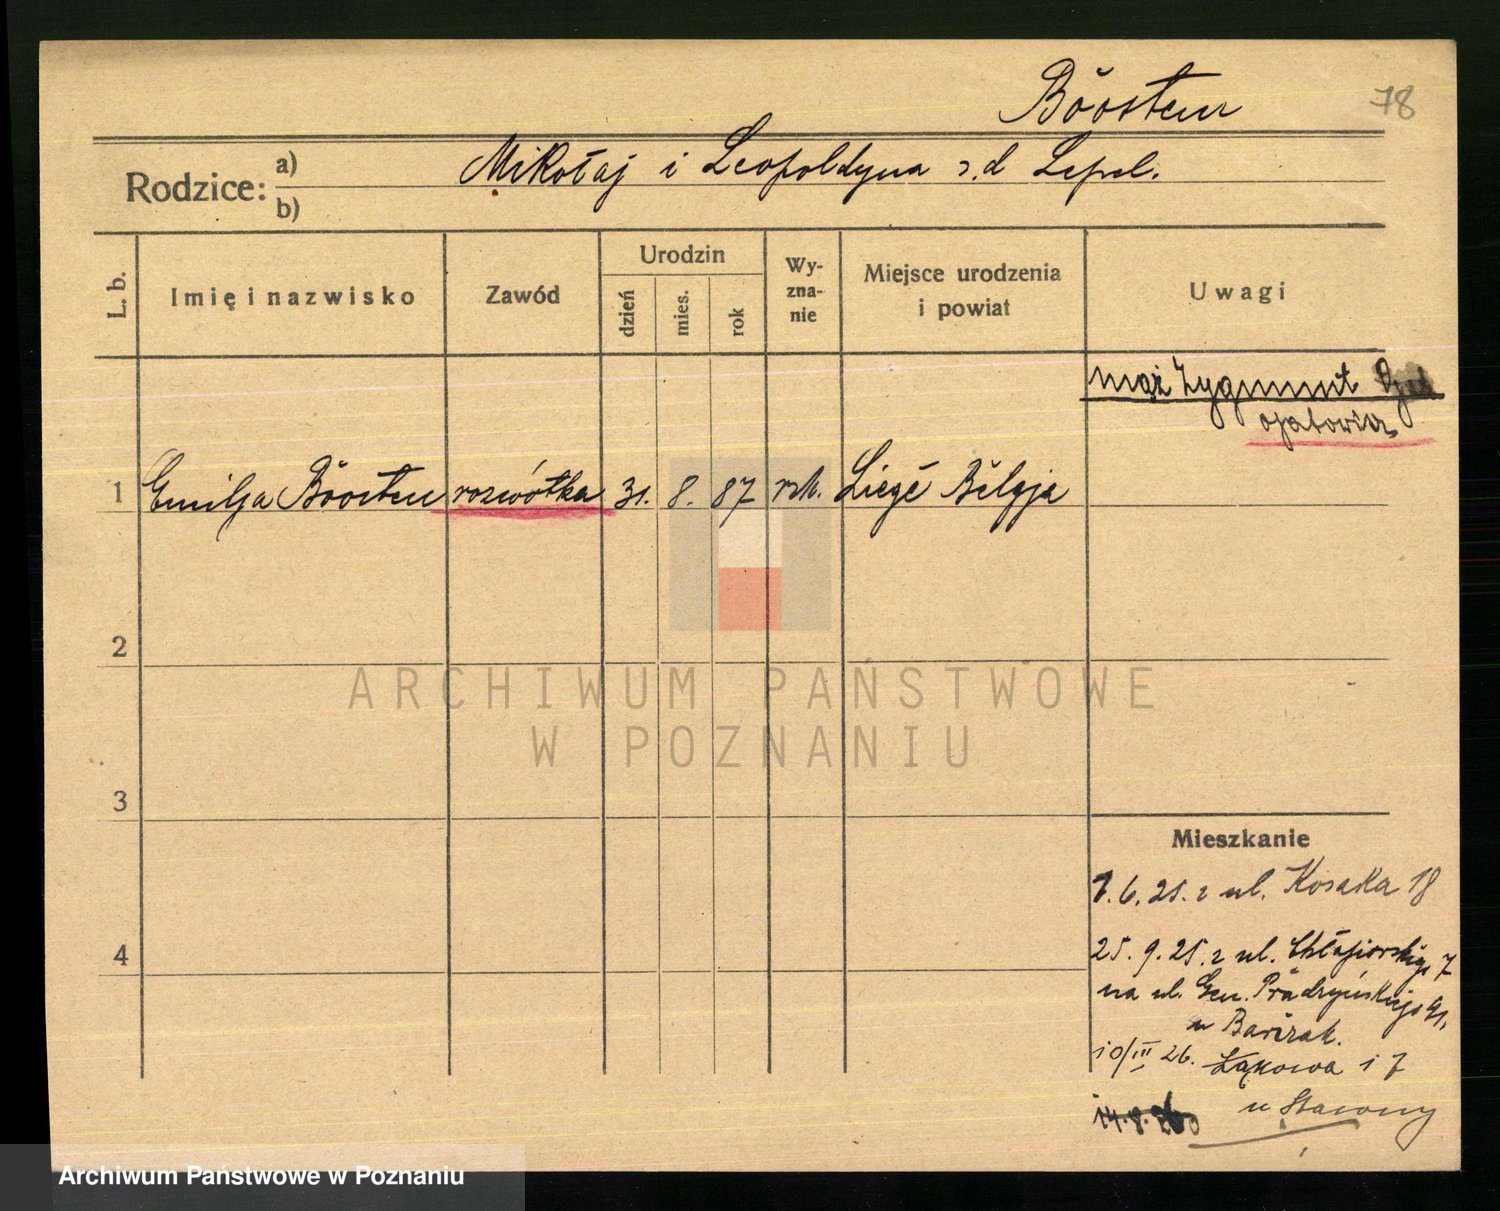 Böosten
78
Rodzice: a) Mikołaj i Leopoldyna z.d Lepel.
b)
L. b.
Imię i nazwisko
Zawód
Urodzin
dzień
mies.
rok
Wy-
zna-
nie
Miejsce urodzenia
i powiat
Uwagi
mąż Zygmunt
1 Emilja Böosten rozwótka 31. 8. 87 rzk. Liegè Belgja
2
3
4
ARCHIWUM PAŃSTWOWE
W POZNANIU
Mieszkanie
1. 6. 25. z ul. Kosaka 18
25. 9. 25. z ul. Chłapowskiego 7
na ul. Gen. Prądzyńskiego 91.
u Barczak.
10/III 26. Łąkowa 17
14. 8.
u Stawny
Archiwum Państwowe w Poznaniu